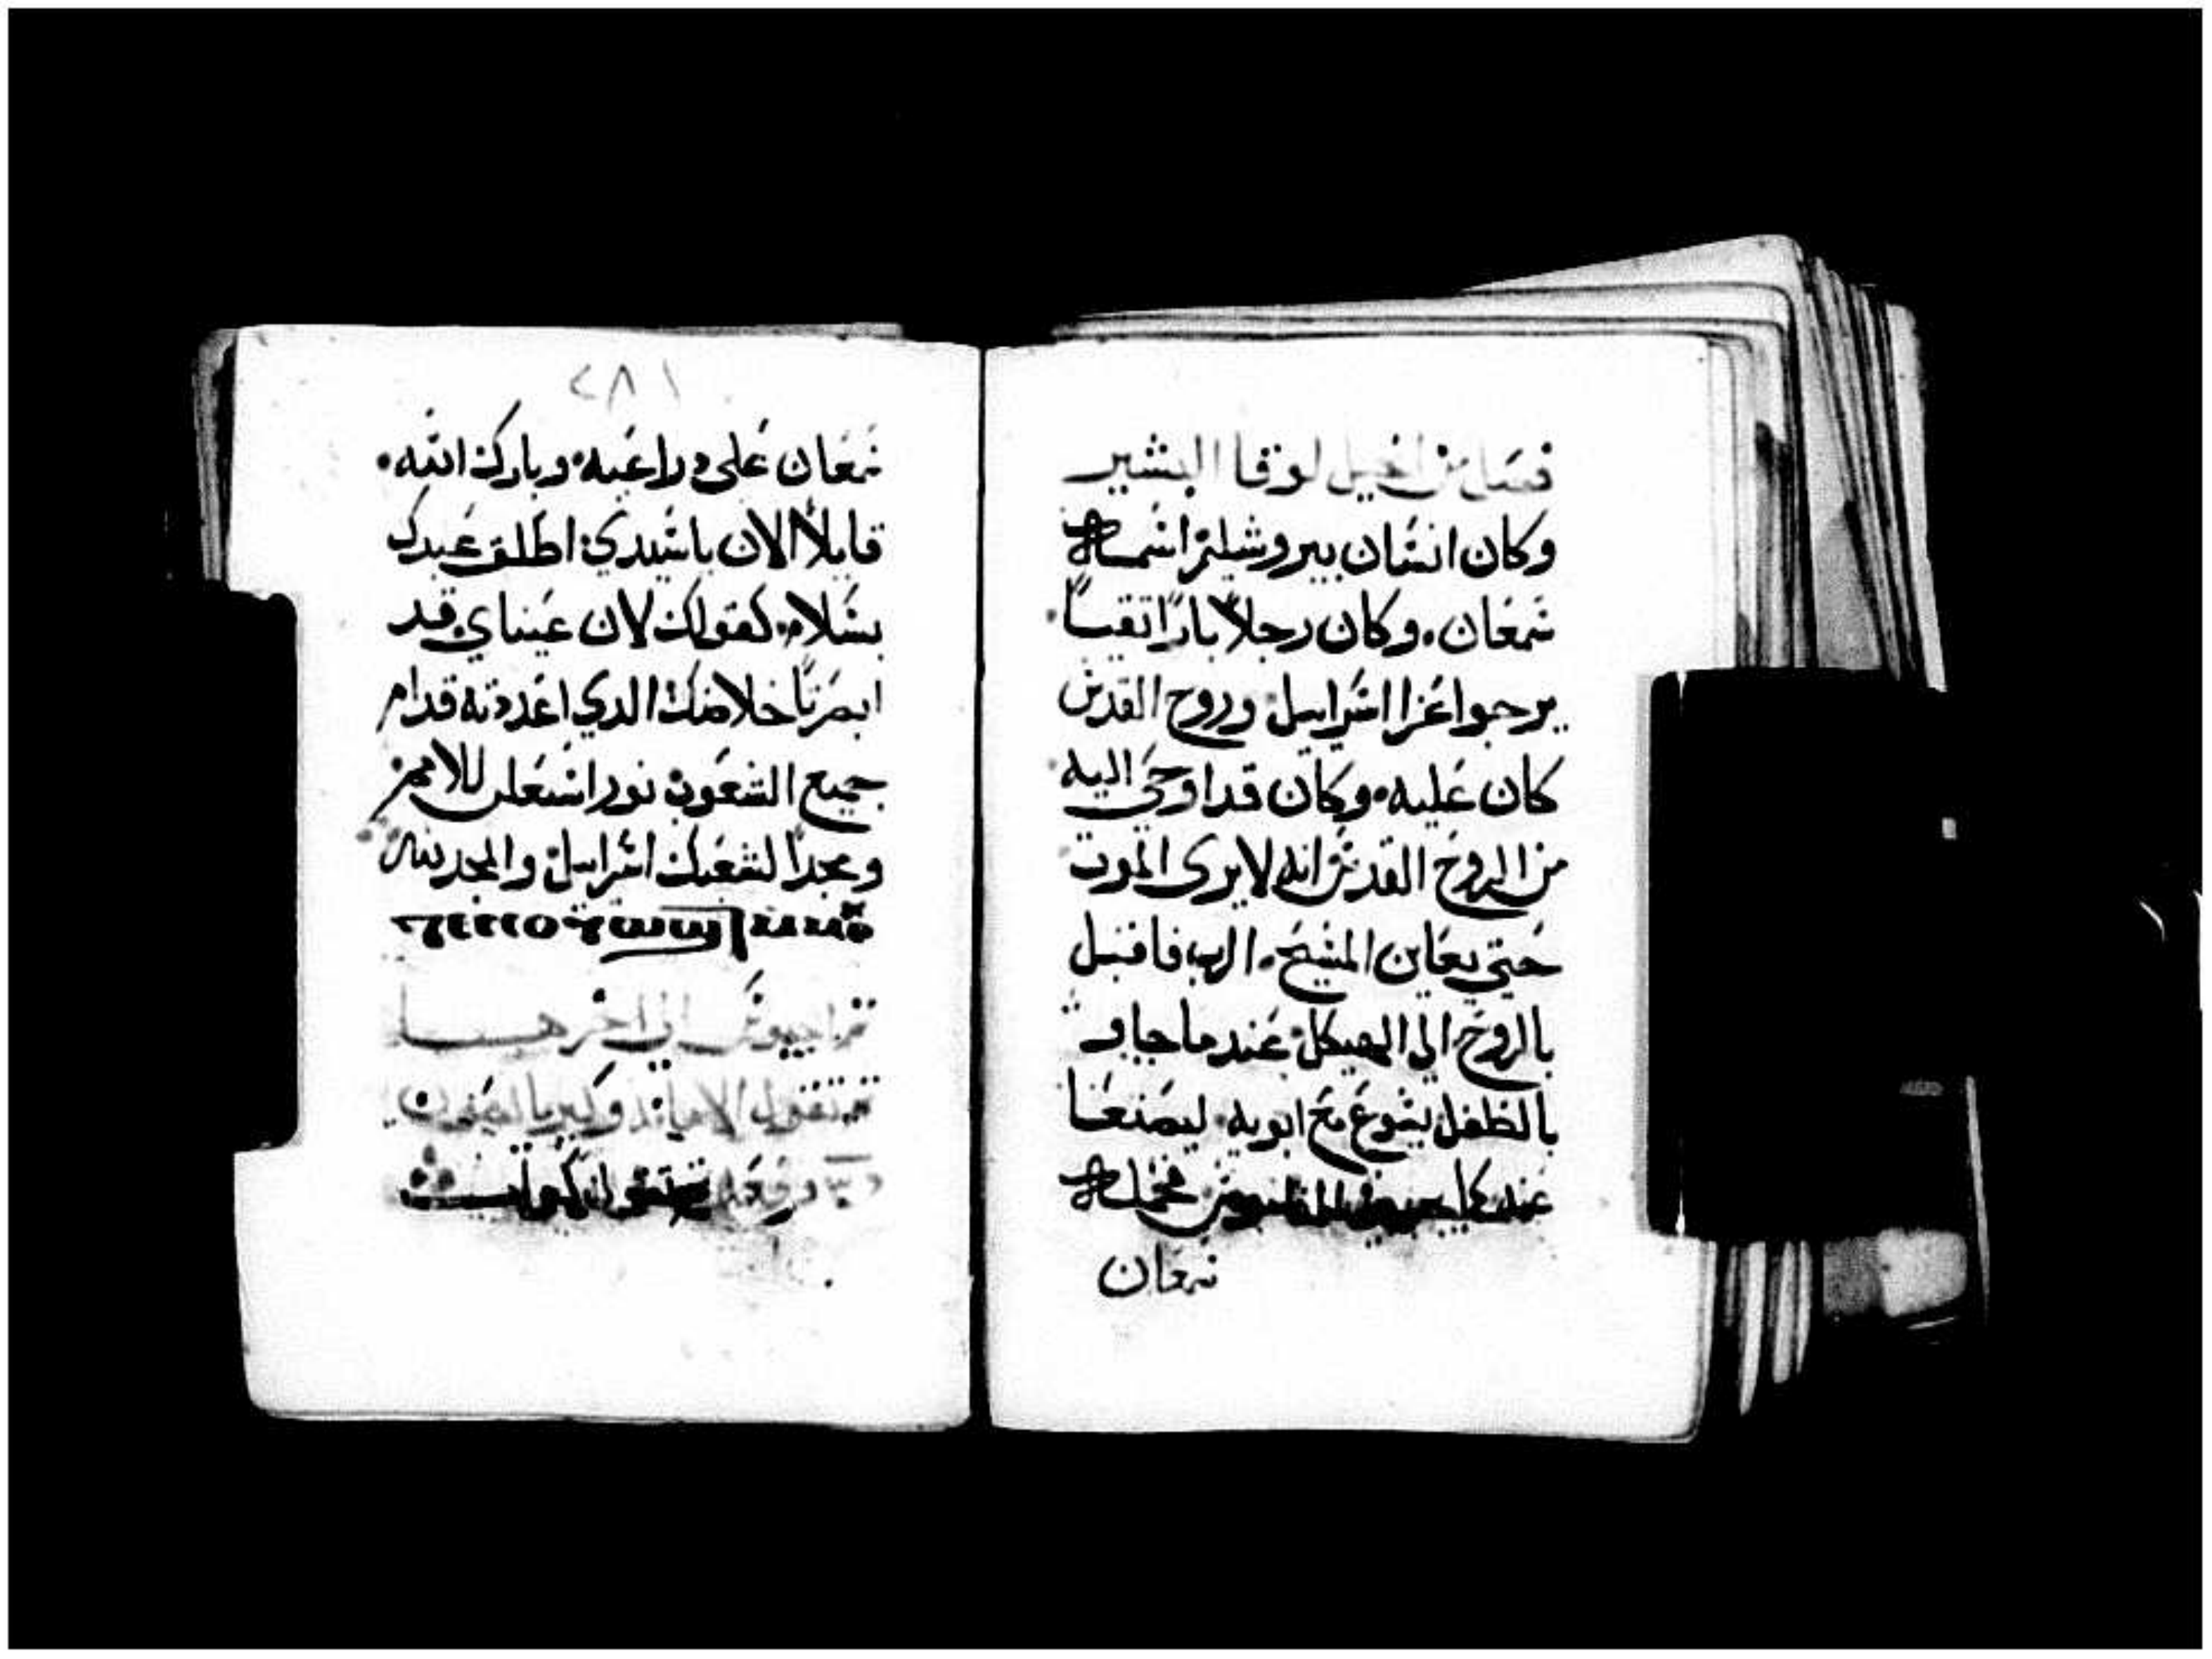 فصل من انجيل لوقا البشير
وكان انسان بيروشليم اسمه
سمعان. وكان رجلاً باراً تقياً.
يرجوا عزا اسراييل وروح القدس
كان عليه. وكان قد اوحي اليه
من الروح القدس انه لا يرى الموت
حتي يعاين المسيح. الرب فاقبل
بالروح الي الهيكل عندما جاو
بالطفل يسوع مع ابويه ليصنعا
عنه كما يجب في الناموس فحمله
سمعان
٢٨١
سمعان علي دراعيه. وبارك الله.
قايلاً الان ياسيدي اطلق عبدك
بسلام. كقولك لان عيناي قد
ابصرتا خلاصك الدي اعددته قدام
جميع الشعوب نور استعلن للامم
ومجداً لشعبك اسراييل والمجد لله
الي اخرها
تقول الامانه وكيرياليصون